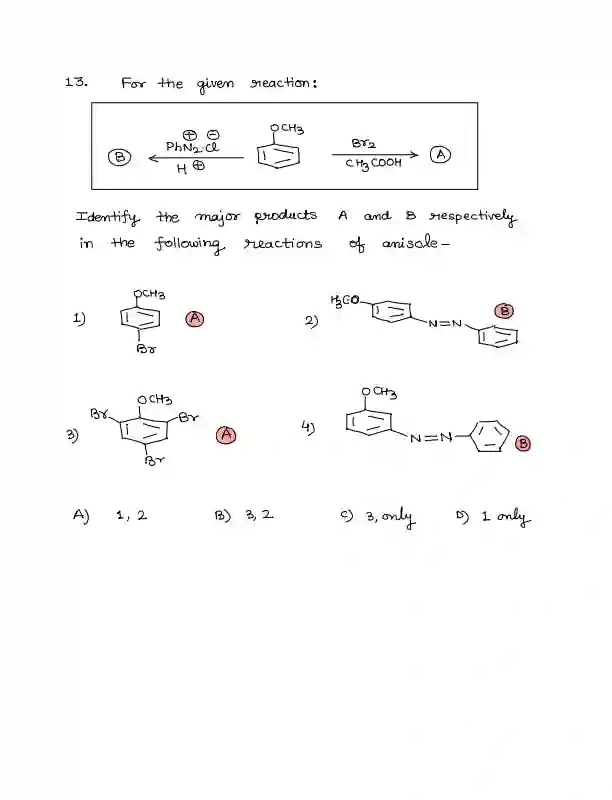 13. For the given reaction:
OCH3
⊕ ⊖
PhN2.Cl
Br2
B
H ⊕
CH3COOH
A
Identify the major products A and B respectively
in the following reactions of anisole-
OCH3
1)
A
Br
2)
H3CO
N=N
B
3)
OCH3
Br
Br
Br
A
4)
OCH3
N=N
B
A) 1, 2 B) 3, 2 C) 3, only D) 1 only